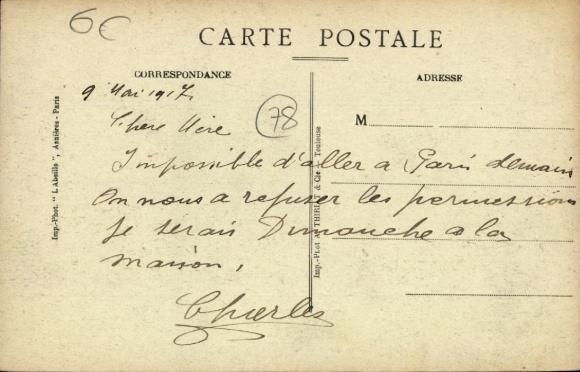 6€
CARTE POSTALE
CORRESPONDANCE
ADRESSE
9 Mai 1917
78
M
Chere Mère
Impossible d'aller a Paris demain
On nous a refuser les permissions
Je serais Dimanche a la
maison,
Charles
Imp.-Phot. "L'Abeille", Asnières - Paris
Imp.-Phot A. THIRIAT & Cie Toulouse